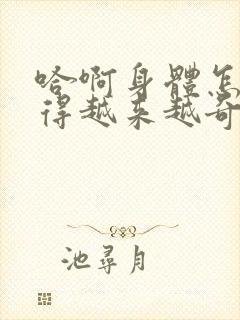 哈啊身體怎
得越来越奇
池尋月